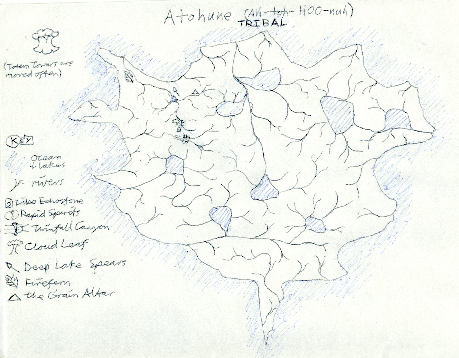 Atohune (Ah-toh-HOO-nuh)
TRIBAL
(Totem Towers are
moved often)
KEY
Ocean
+ Lakes
Rivers
Echostone
Rapid
Canyon
Cloud Leaf
Deep Lake Spears
Firefern
the Grain Altar